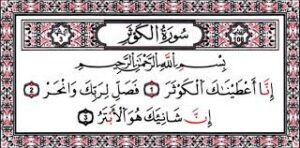 سُورَةُ الكَوْثَر
بِسْمِ اللَّهِ الرَّحْمَٰنِ الرَّحِيمِ
إِنَّا أَعْطَيْنَاكَ الْكَوْثَرَ ١ فَصَلِّ لِرَبِّكَ وَانْحَرْ ٢
إِنَّ شَانِئَكَ هُوَ الْأَبْتَرُ ٣